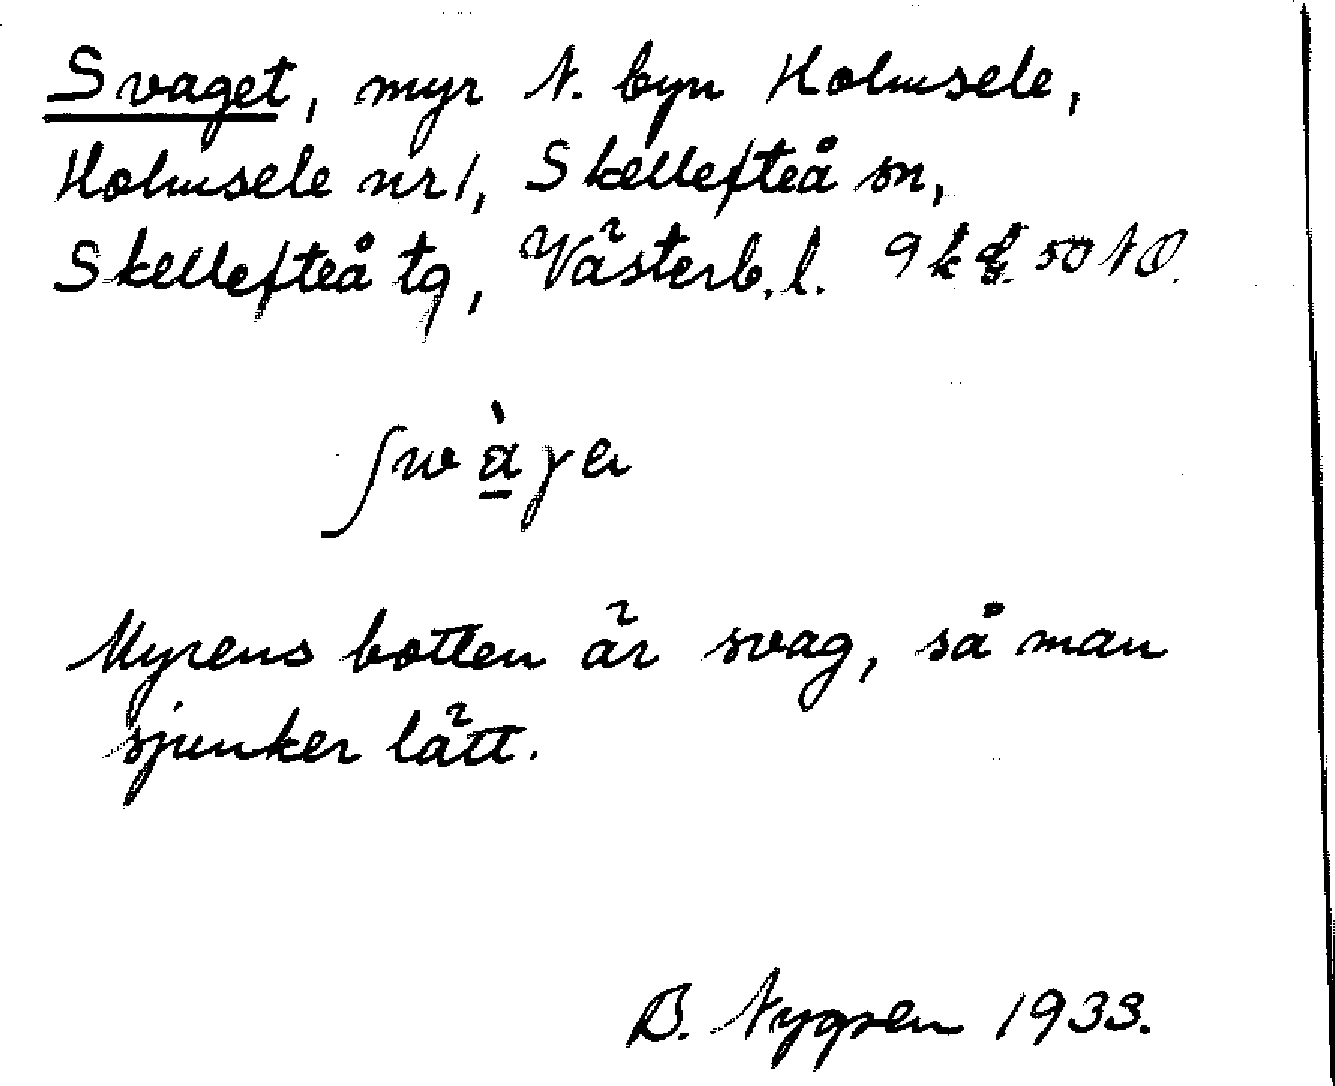 Svaget, myr N. byn Holmsele,
Holmsele nr 1, Skellefteå sn,
Skellefteå tg, Västerb. l. 50 NO.
Myrens botten är svag, så man
sjunker lätt.
B. Nygren 1933.